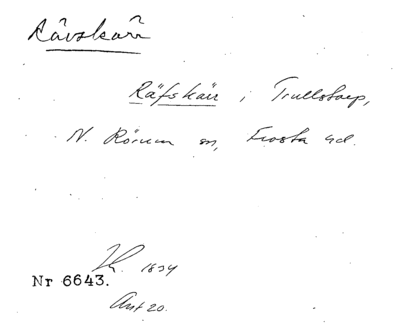 Rävskärr
Räfskärr i Trullstorp,
N. Rörum sn, Frosta hd.
1834
Nr 6643.
Ant 20.